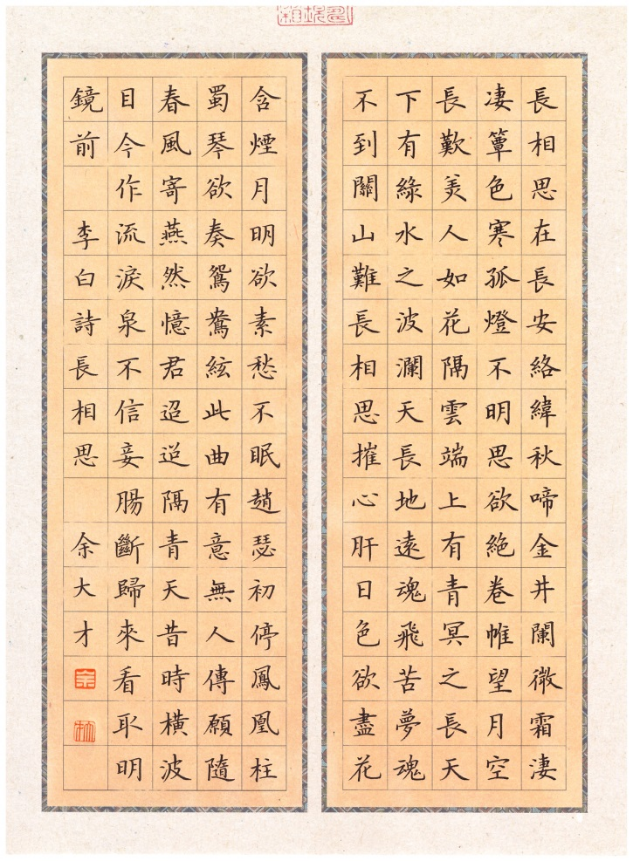 長相思在長安絡緯秋啼金井闌微霜淒
凄簟色寒孤燈不明思欲絕卷帷望月空
長歎美人如花隔雲端上有青冥之長天
下有綠水之波瀾天長地遠魂飛苦夢魂
不到關山難長相思摧心肝日色欲盡花
含煙月明欲素愁不眠趙瑟初停鳳凰柱
蜀琴欲奏鴛鴦絃此曲有意無人傳願隨
春風寄燕然憶君迢迢隔青天昔時橫波
目今作流淚泉不信妾腸斷歸來看取明
鏡前 李白詩長相思 余大才